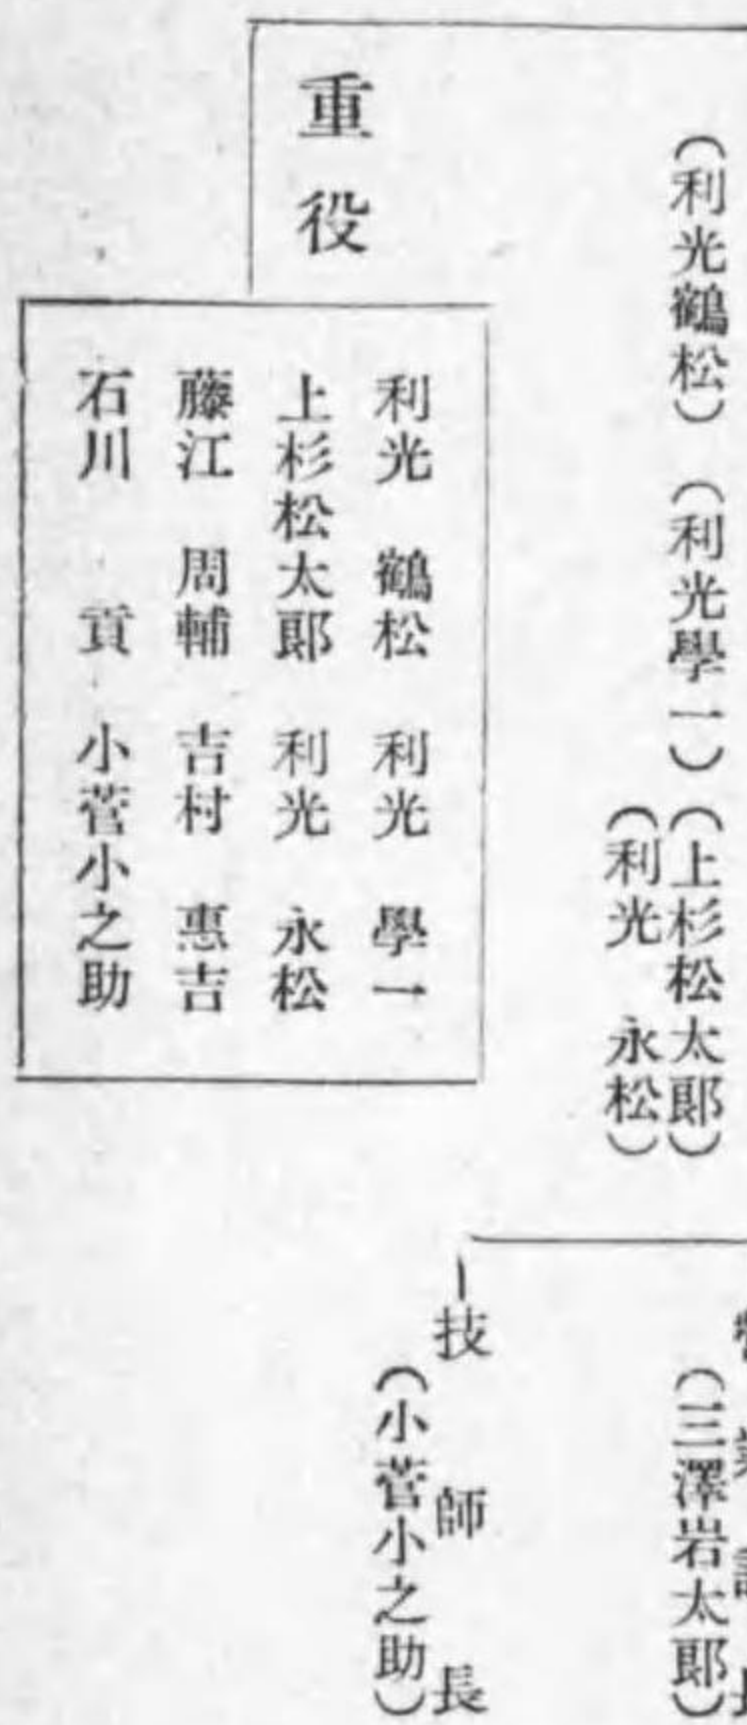 (利光鶴松) (利光學一) (上杉松太郞)
(利光 永松)
重役
利光 鶴松 利光 學一
上杉松太郞 利光 永松
藤江 周輔 吉村 惠吉
石川 貢 小菅小之助
(三澤岩太郞)
技師長
(小菅小之助)